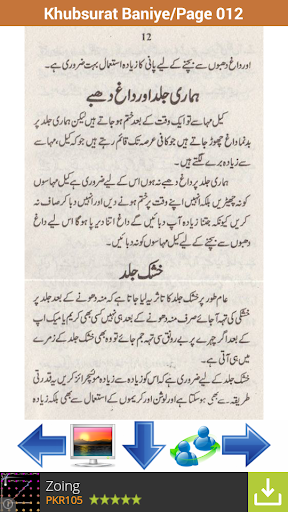 Khubsurat Baniye/Page 012
12
اور داغ دھبوں سے بچنے کے لیے پانی کا زیادہ استعمال بہت ضروری ہے۔
ہماری جلد اور داغ دھبے
کیل مہاسے تو ایک وقت کے بعد ختم ہو جاتے ہیں لیکن ہماری جلد پر
بدنما داغ چھوڑ جاتے ہیں جو کافی عرصہ تک قائم رہتے ہیں جو کیل، مہاسے
سے زیادہ برے لگتے ہیں۔
ہماری جلد پر داغ دھبے نہ ہوں اس کے لیے ضروری ہے کیل مہاسوں
کو نہ چھیڑیں بلکہ اپنے وقت پر ختم ہونے دیں اور انہیں دبا کر صاف نہ
کریں کیونکہ جتنا زیادہ آپ دبائیں گے داغ اتنا دیرپا ہو گا اس لیے داغ
دھبوں سے بچنے کے لیے کیل مہاسوں کو نہ دبائیں۔
خشک جلد
عام طور پر خشک جلد کا تاثر یہ لیا جاتا ہے کہ منہ دھونے کے بعد جلد پر
خشکی کی تہہ آ جائے صرف منہ دھونے کے بعد ہی نہیں کسی بھی کریم یا میک اپ
کے بعد اگر چہرے پر بے رونق سی تہہ جم جائے تو وہ بھی خشک جلد کے زمرے
میں ہی آتی ہے۔
خشک جلد کے لیے ضروری ہے کہ اس کو زیادہ سے زیادہ موئسچرائز کریں یہ قدرتی
طریقہ سے بھی ہو سکتا ہے اور لوشن اور کریموں کے استعمال سے بھی بلکہ زیادہ
Zoing
PKR105